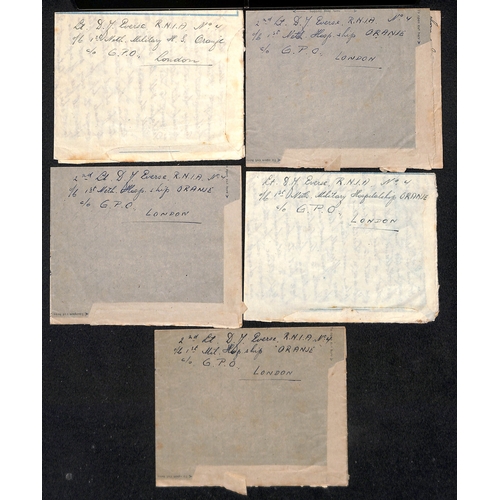 Lt. D. J. Everse R.N.I.A No 4
1/6 1st Neth. Military H. S. Oranje
c/o G.P.O.
London
2nd Lt D. J. Everse, R.N.I.A No 4
1/6 1st Neth Hosp. ship ORANJE
c/o G.P.O.
LONDON
2nd Lt D. J. Everse, R.N.I.A. No 4
1/6 1st Neth. Hosp. ship ORANJE
c/o G.P.O.
LONDON
Lt. D. J. Everse, R.N.I.A. No 4
1/6 1st Neth. Military Hospitalship ORANJE
c/o G.P.O.
LONDON
2nd Lt D. J. Everse, R.N.I.A. No 4
1/6 1st Mil. Hosp ship ORANJE
c/o G.P.O.
LONDON